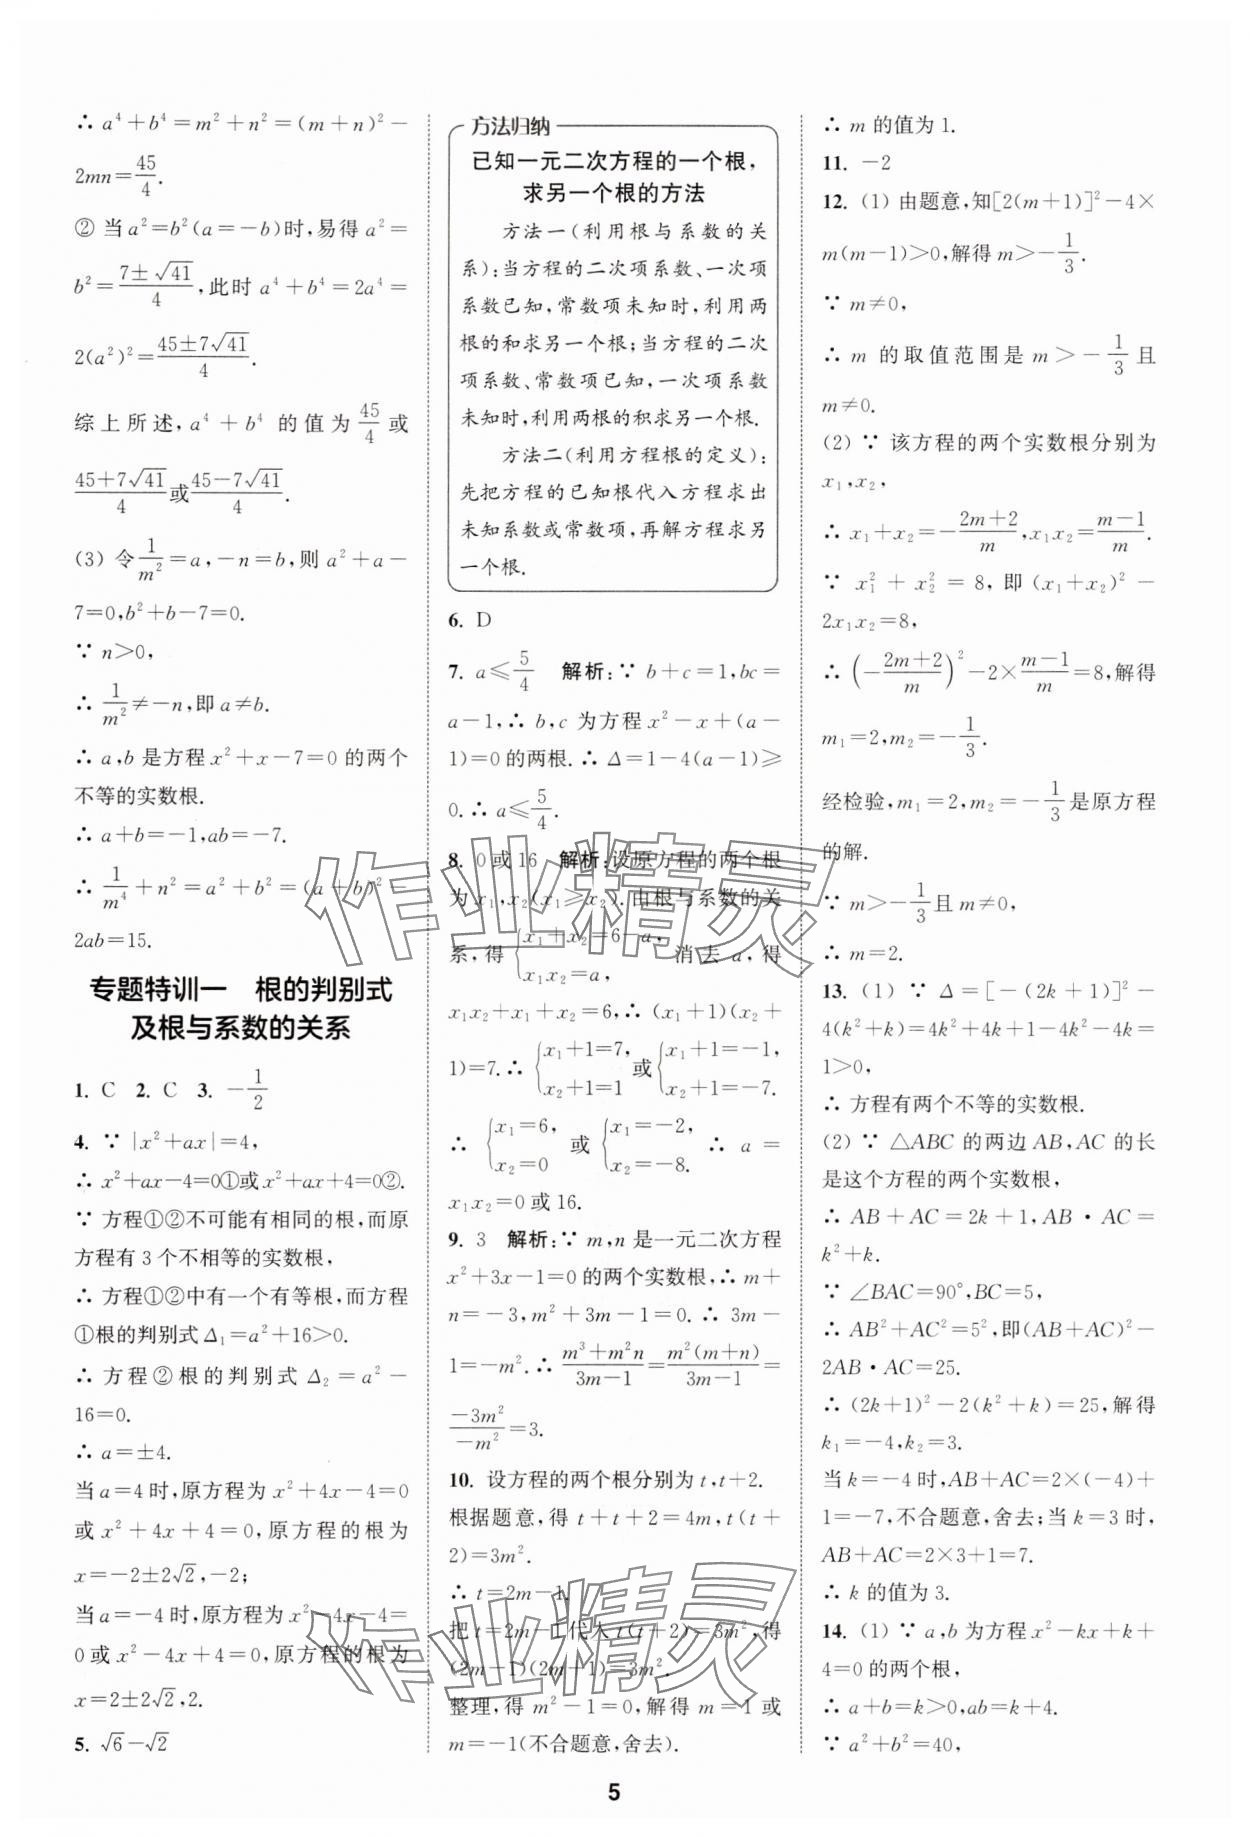 ∴ a⁴+b⁴=m²+n²=(m+n)²-
2mn=45/4.
② 当a²=b²(a=-b)时,易得a²=
b²=(7±√41)/4,此时a⁴+b⁴=2a⁴=
2(a²)²=(45±7√41)/4.
综上所述,a⁴+b⁴ 的值为45/4或
(45+7√41)/4或(45-7√41)/4.
(3) 令1/m²=a,-n=b,则a²+a-
7=0,b²+b-7=0.
∵ n>0,
∴ 1/m²≠-n,即a≠b.
∴ a,b是方程x²+x-7=0的两个
不等的实数根.
∴ a+b=-1,ab=-7.
∴ 1/m⁴+n²=a²+b²=(a+b)²-
2ab=15.
专题特训一 根的判别式
及根与系数的关系
1. C 2. C 3. -1/2
4. ∵ |x²+ax|=4,
∴ x²+ax-4=0①或x²+ax+4=0②.
∵ 方程①②不可能有相同的根,而原
方程有3个不相等的实数根,
∴ 方程①②中有一个有等根,而方程
①根的判别式Δ₁=a²+16>0.
∴ 方程②根的判别式Δ₂=a²-
16=0.
∴ a=±4.
当a=4时,原方程为x²+4x-4=0
或x²+4x+4=0,原方程的根为
x=-2±2√2,-2;
当a=-4时,原方程为x²-4x-4=
0或x²-4x+4=0,原方程的根为
x=2±2√2,2.
5. √6-√2
方法归纳
已知一元二次方程的一个根,
求另一个根的方法
方法一(利用根与系数的关
系):当方程的二次项系数、一次项
系数已知,常数项未知时,利用两
根的和求另一个根;当方程的二次
项系数、常数项已知,一次项系数
未知时,利用两根的积求另一个根.
方法二(利用方程根的定义):
先把方程的已知根代入方程求出
未知系数或常数项,再解方程求另
一个根.
6. D
7. a≤5/4 解析:∵ b+c=1,bc=
a-1,∴ b,c为方程x²-x+(a-
1)=0的两根.∴ Δ=1-4(a-1)≥
0.∴ a≤5/4.
8. 0或16 解析:设原方程的两个根
为x₁,x₂(x₁≥x₂).由根与系数的关
系,得{x₁+x₂=6-a, x₁x₂=a, 消去a,得
x₁x₂+x₁+x₂=6,∴ (x₁+1)(x₂+
1)=7.∴ {x₁+1=7, x₂+1=1 或{x₁+1=-1, x₂+1=-7.
∴ {x₁=6, x₂=0 或{x₁=-2, x₂=-8. ∴ a=
x₁x₂=0或16.
9. 3 解析:∵ m,n是一元二次方程
x²+3x-1=0的两个实数根,∴ m+
n=-3,m²+3m-1=0.∴ 3m-
1=-m².∴ (m³+m²n)/(3m-1)=m²(m+n)/(3m-1)=
-3m²/-m²=3.
10. 设方程的两个根分别为t,t+2.
根据题意,得t+t+2=4m,t(t+
2)=3m².
∴ t=2m-1.
把t=2m-1代入t(t+2)=3m²,得
(2m-1)(2m+1)=3m².
整理,得m²-1=0,解得m=1或
m=-1(不合题意,舍去).
∴ m的值为1.
11. -2
12. (1) 由题意,知[2(m+1)]²-4×
m(m-1)>0,解得m>-1/3.
∵ m≠0,
∴ m的取值范围是m>-1/3且
m≠0.
(2) ∵ 该方程的两个实数根分别为
x₁,x₂,
∴ x₁+x₂=-(2m+2)/m,x₁x₂=(m-1)/m.
∵ x₁²+x₂²=8,即(x₁+x₂)²-
2x₁x₂=8,
∴ (-(2m+2)/m)²-2×(m-1)/m=8,解得
m₁=2,m₂=-1/3.
经检验,m₁=2,m₂=-1/3是原方程
的解.
∵ m>-1/3且m≠0,
∴ m=2.
13. (1) ∵ Δ=[-(2k+1)]²-
4(k²+k)=4k²+4k+1-4k²-4k=
1>0,
∴ 方程有两个不等的实数根.
(2) ∵ △ABC的两边AB,AC的长
是这个方程的两个实数根,
∴ AB+AC=2k+1,AB·AC=
k²+k.
∵ ∠BAC=90°,BC=5,
∴ AB²+AC²=5²,即(AB+AC)²-
2AB·AC=25.
∴ (2k+1)²-2(k²+k)=25,解得
k₁=-4,k₂=3.
当k=-4时,AB+AC=2×(-4)+
1=-7,不合题意,舍去;当k=3时,
AB+AC=2×3+1=7.
∴ k的值为3.
14. (1) ∵ a,b为方程x²-kx+k+
4=0的两个根,
∴ a+b=k>0,ab=k+4.
∵ a²+b²=40,
5
作业精灵
作业精灵